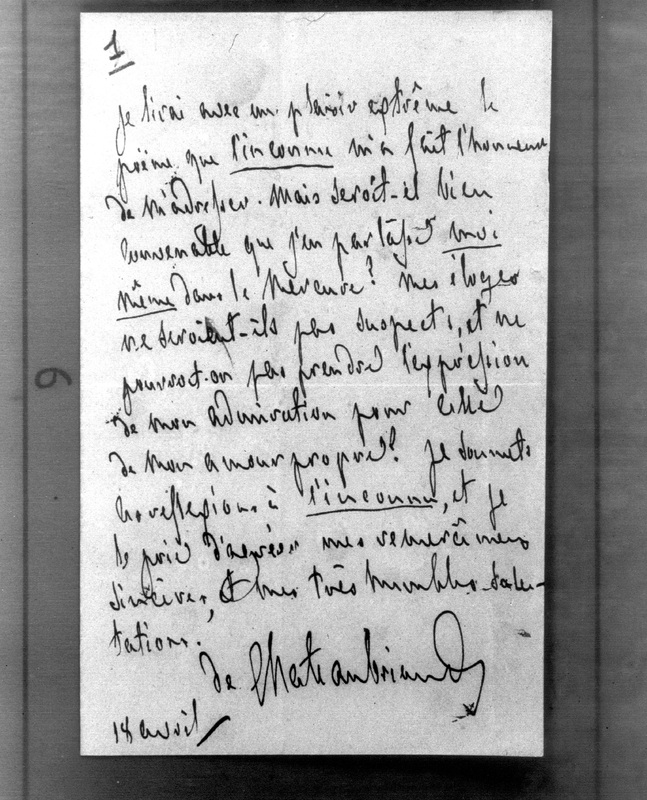 1
je lirai avec un plaisir extrême le
poëme que l'inconnu m'a fait l'honneur
de m'adresser. Mais seroit-il bien
convenable que j'en parlasse moi
même dans le Mercure? Mes éloges
ne seroient-ils pas suspects, et ne
pourroit-on pas prendre l'expression
de mon admiration pour celle
de mon amour propre? Je soumets
ces réflexions à l'inconnu, et je
le prie d'agréer mes remercîmens
sincères, et mes très humbles salu-
tations.
de Chateaubriand
18 avril
6